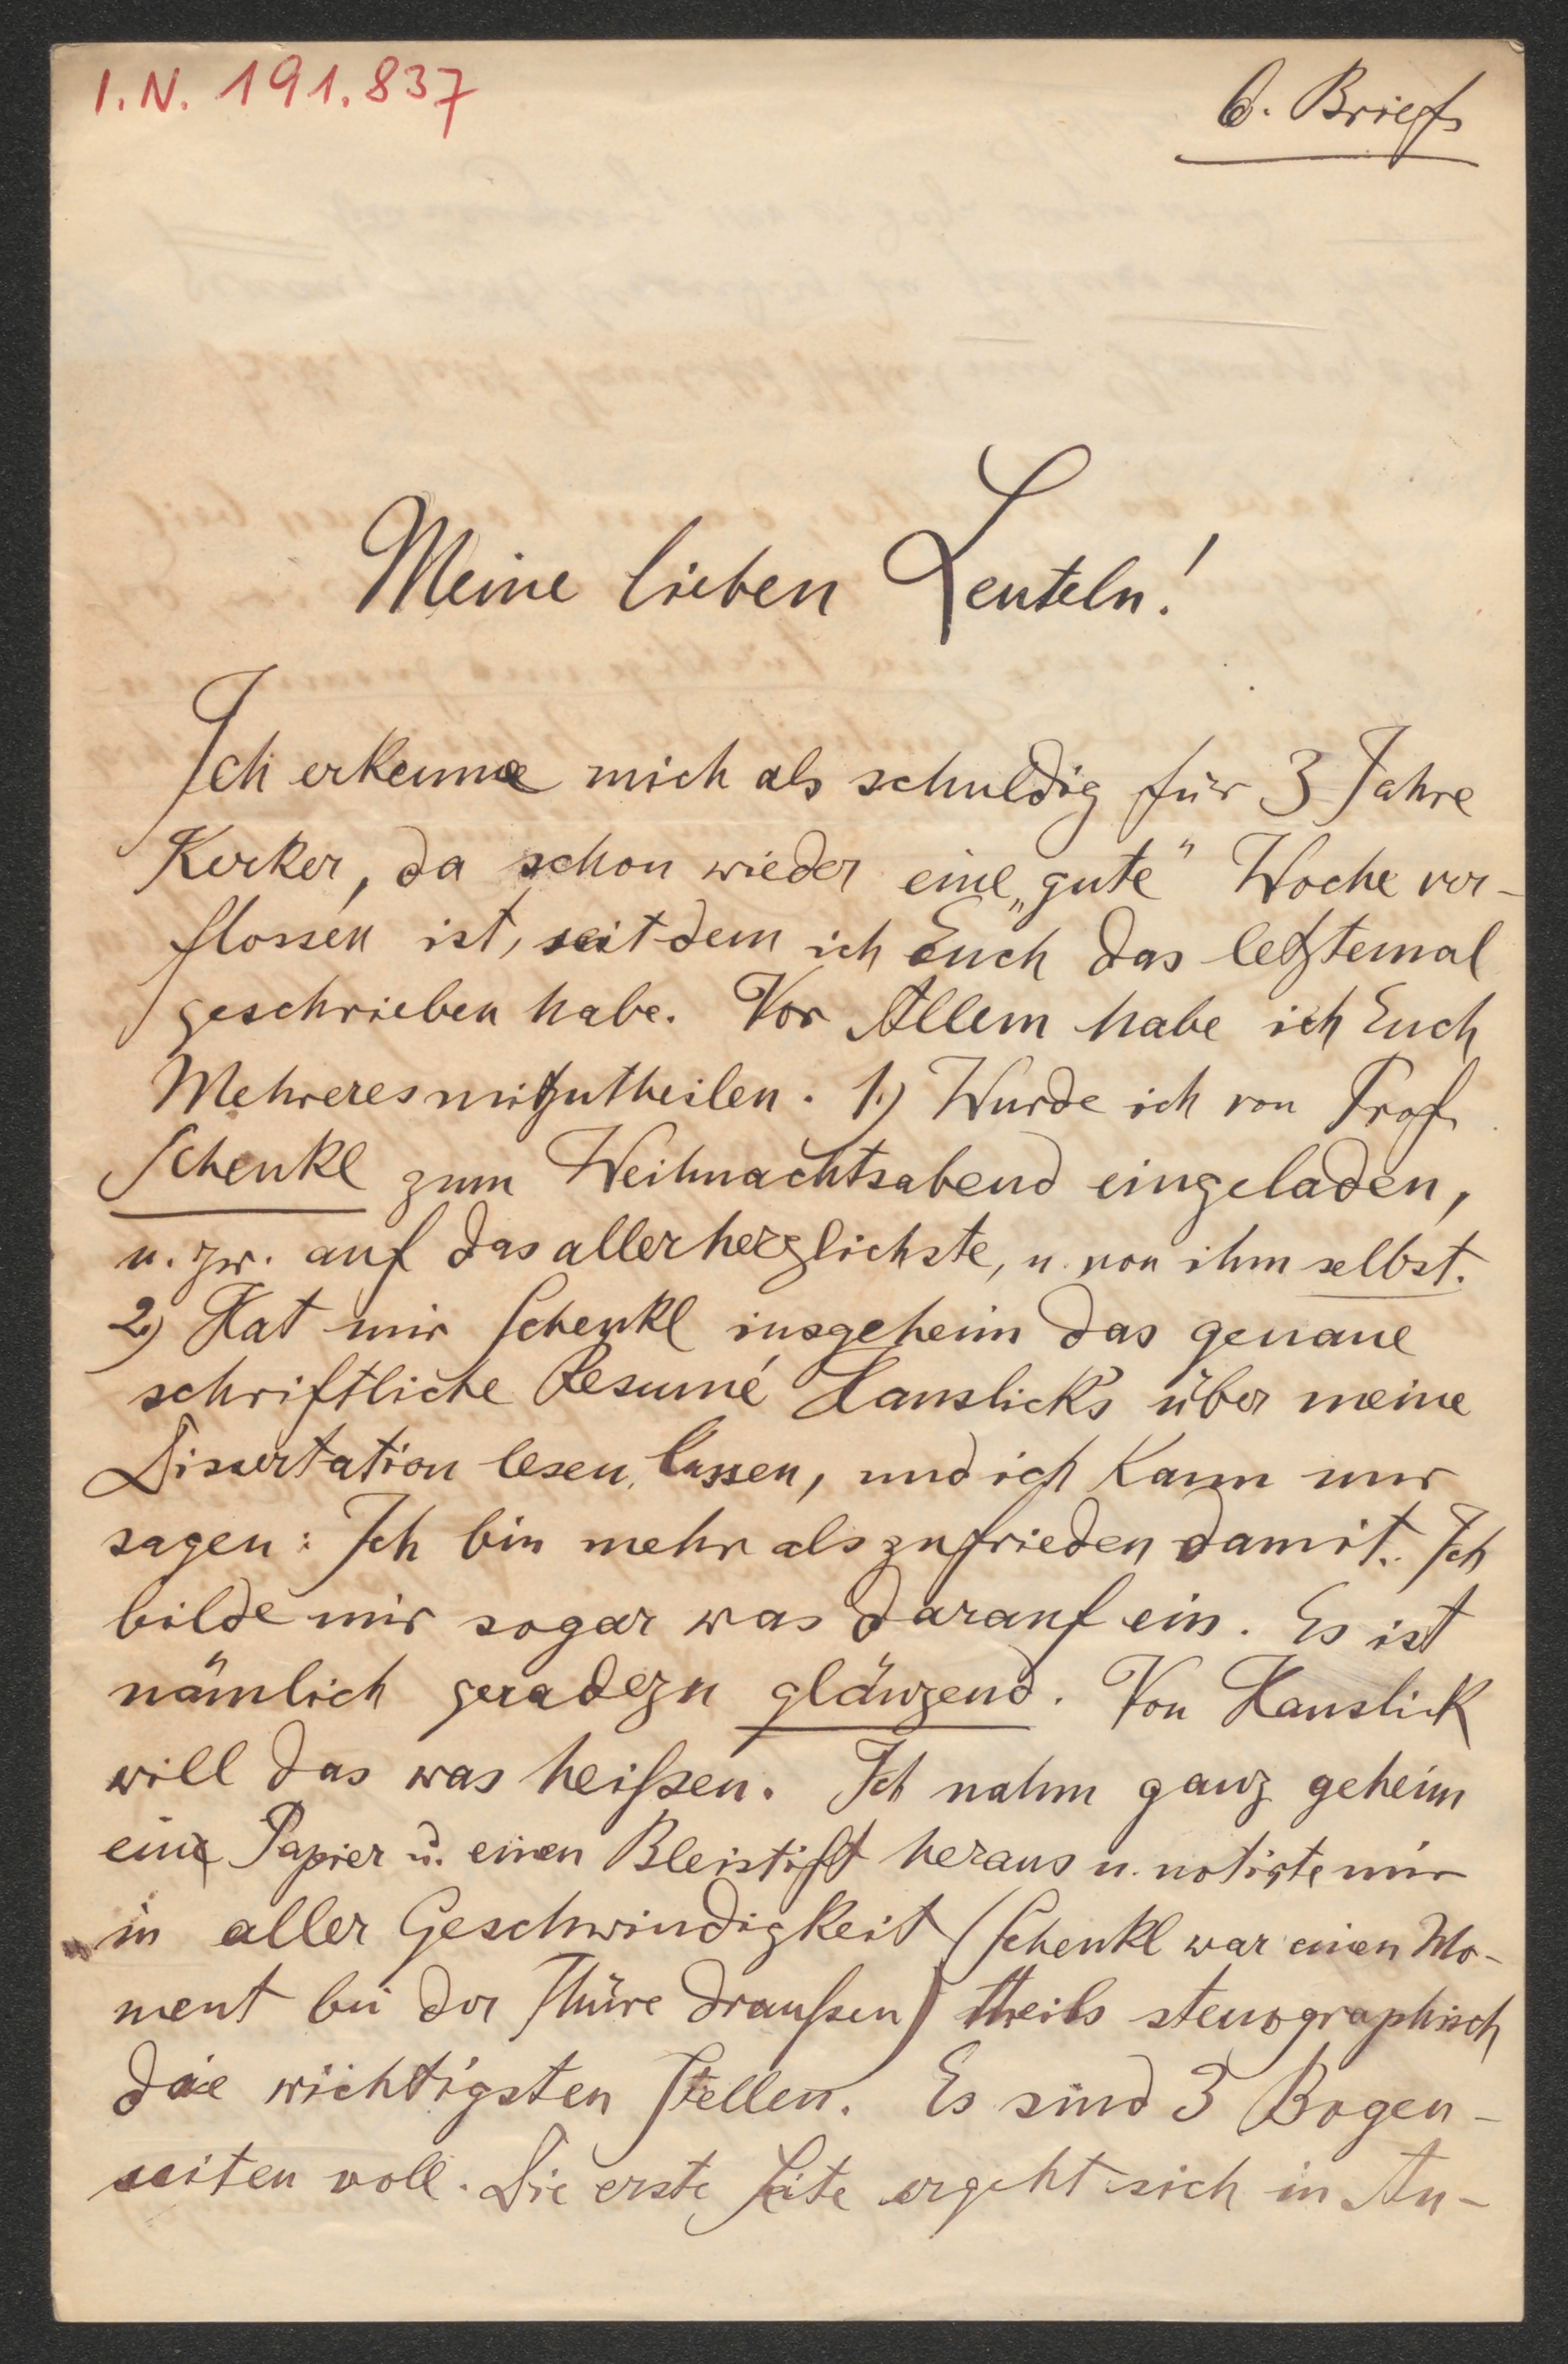 I.N. 191.837
6. Brief
Meine lieben Leuteln!
Ich erkenne mich als schuldig für 3 Jahre
Kerker, da schon wieder eine „gute" Woche ver-
flossen ist, seitdem ich Euch das letztemal
geschrieben habe. Vor Allem habe ich Euch
Mehreres mitzutheilen. 1.) Wurde ich von Prof.
Schenkl zum Weihnachtsabend eingeladen,
u. zw. auf das allerherzlichste, u. von ihm selbst.
2.) Hat mir Schenkl insgeheim das genaue
schriftliche Resumé Hanslick's über meine
Dissertation lesen lassen, und ich kann nur
sagen: Ich bin mehr als zufrieden damit. Ich
bilde mir sogar was darauf ein. Es ist
nämlich geradezu glänzend. Von Hanslick
will das was heißen. Ich nahm ganz geheim
ein Papier u. einen Bleistift heraus u. notirte mir
in aller Geschwindigkeit (Schenkl war einen Mo-
ment bei der Thüre draußen) theils stenographisch
die wichtigsten Stellen. Es sind 3 Bogen-
seiten voll. Die erste Seite ergeht sich in An-